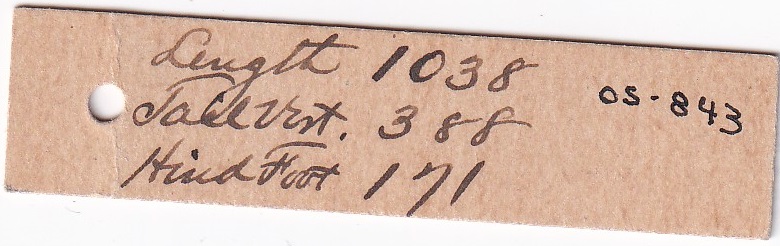 Length 1038
Tail Vert. 388
Hind Foot 171
OS-843